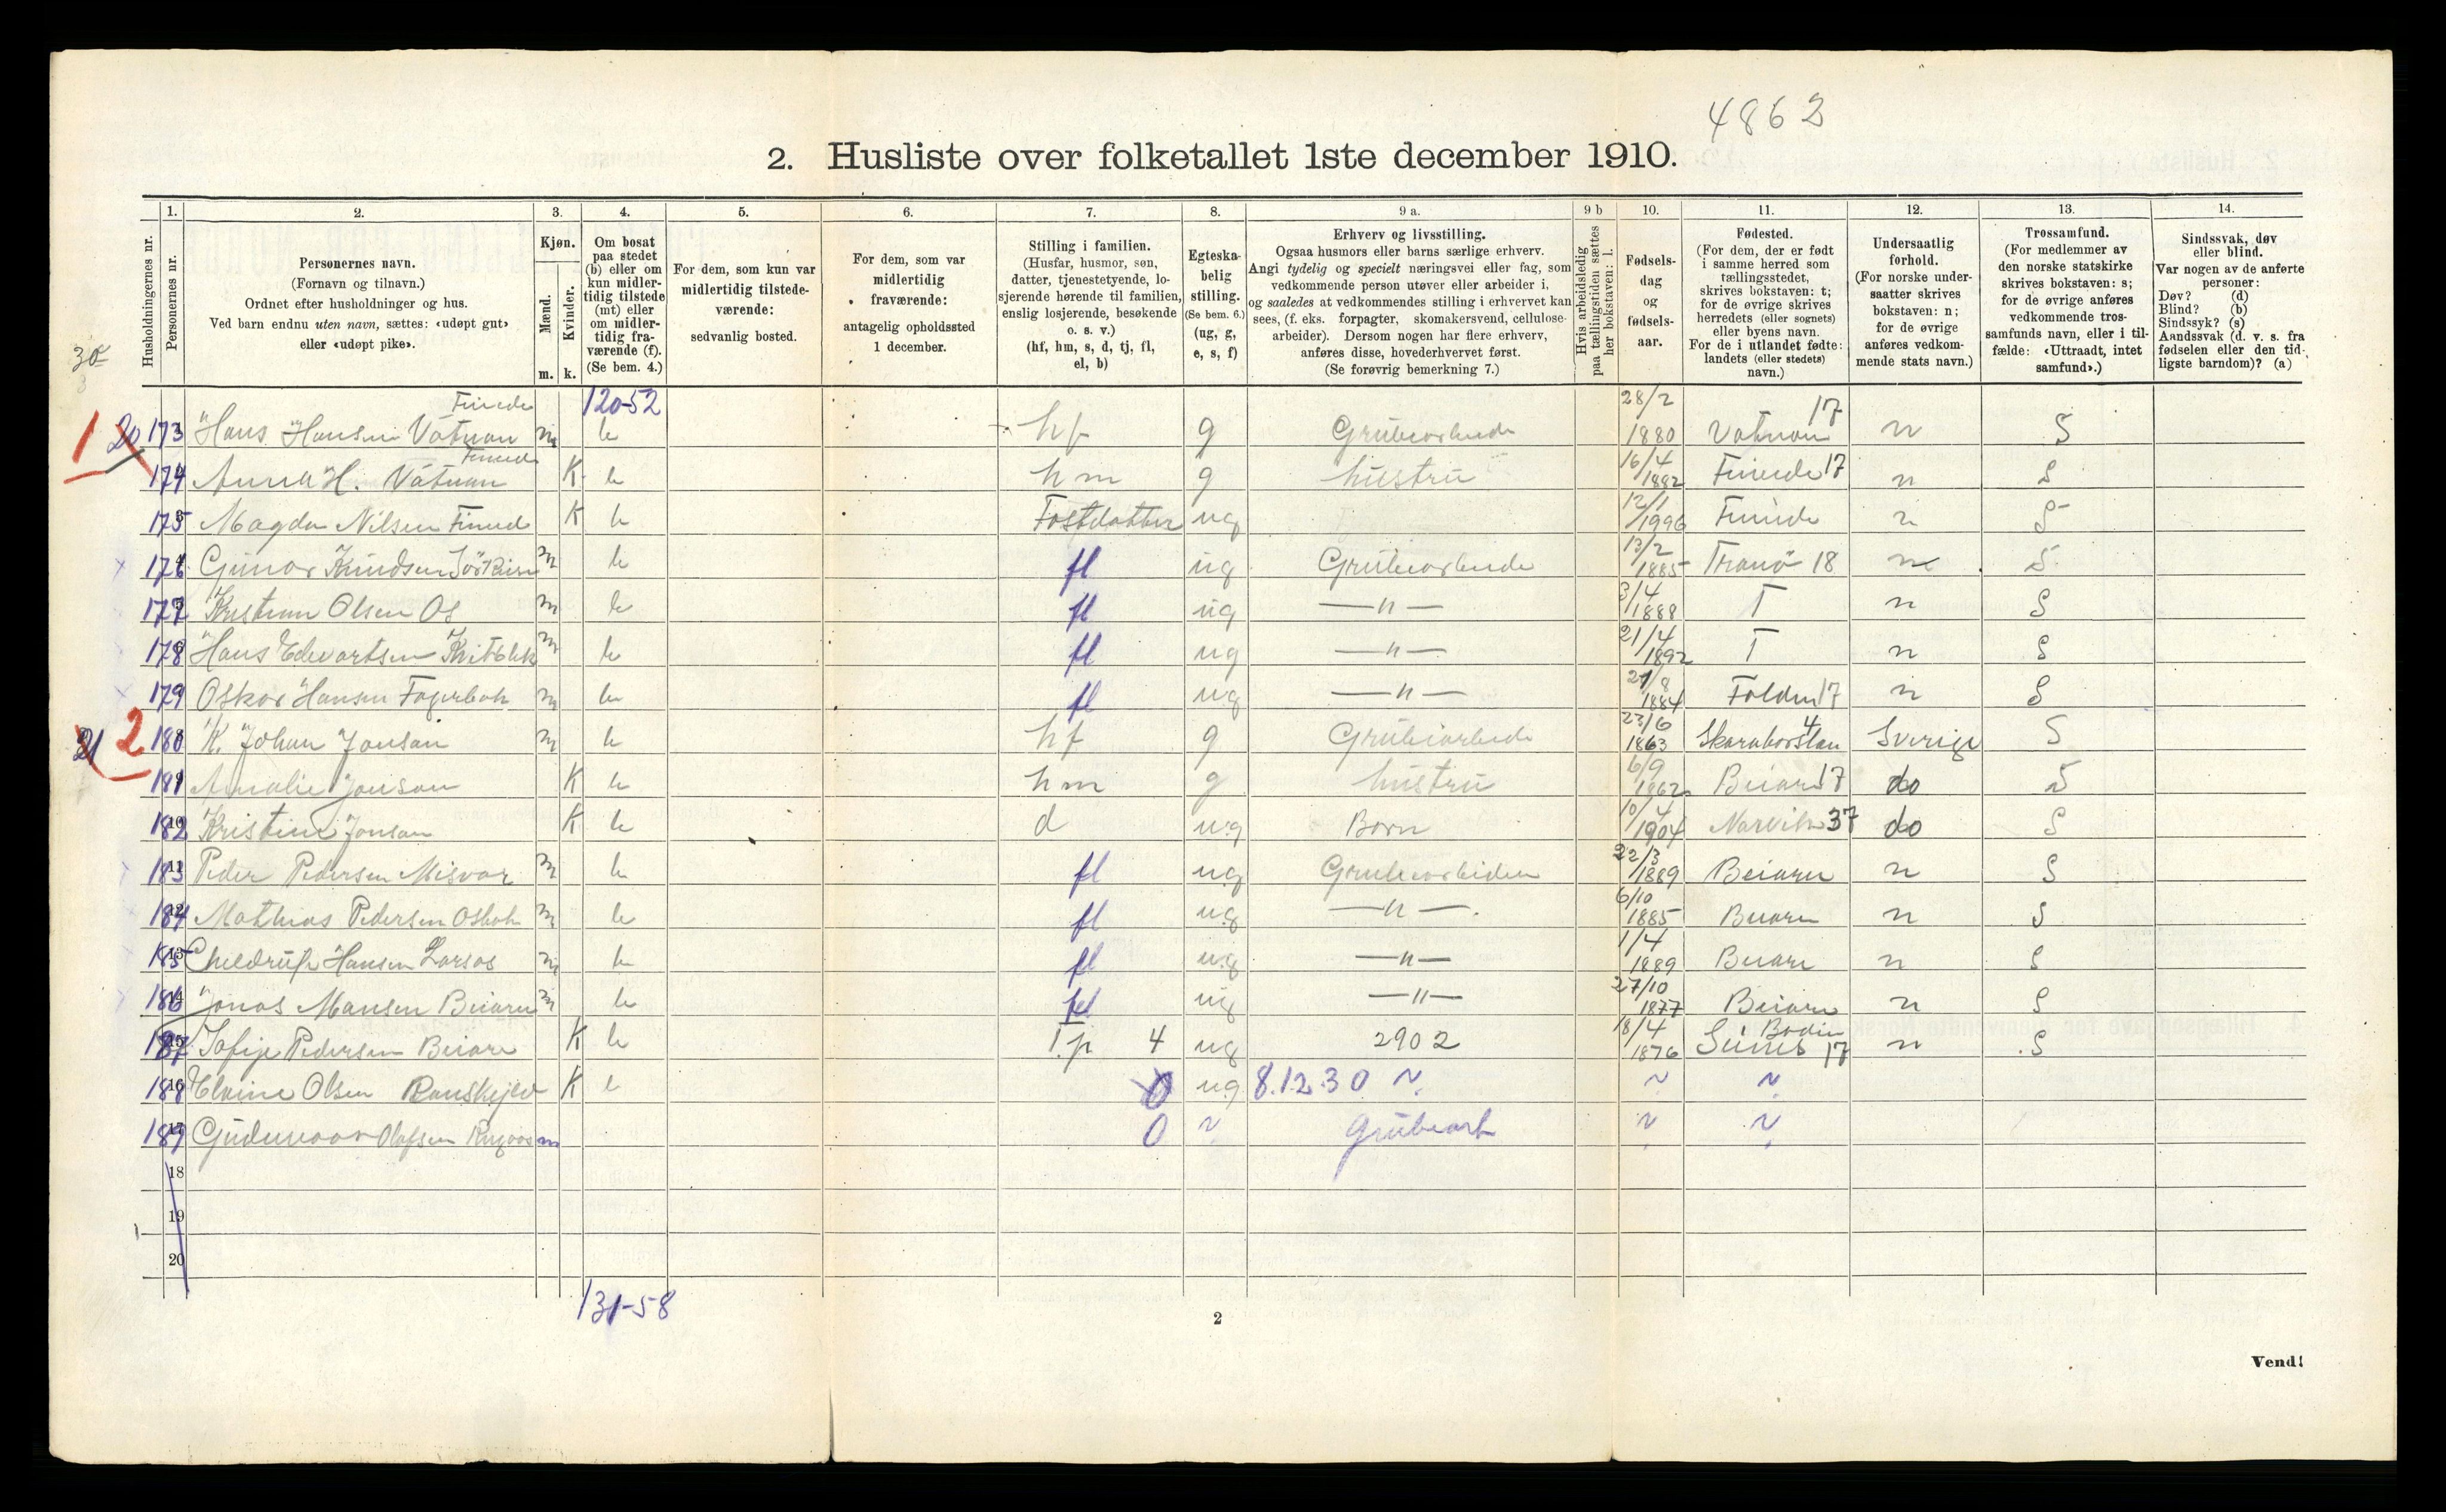 4862
2. Husliste over folketallet 1ste december 1910.
Husholdningernes nr.
1.
Personernes nr.
2.
Personernes navn.
(Fornavn og tilnavn.)
Ordnet efter husholdninger og hus.
Ved barn endnu uten navn, sættes: «udøpt gut»
eller «udøpt pike».
3.
Kjøn.
Mænd.
Kvinder.
m. k.
4.
Om bosat
paa stedet
(b) eller om
kun midler-
tidig tilstede
(mt) eller
om midler-
tidig fra-
værende (f).
(Se bem. 4.)
5.
For dem, som kun var
midlertidig tilstede-
værende:
sedvanlig bosted.
6.
For dem, som var
midlertidig
fraværende:
antagelig opholdssted
1 december.
7.
Stilling i familien.
(Husfar, husmor, søn,
datter, tjenestetyende, lo-
sjerende hørende til familien,
enslig losjerende, besøkende
o. s. v.)
(hf, hm, s, d, tj, fl,
el, b)
8.
Egteska-
belig
stilling.
(Se bem. 6.)
(ug, g,
e, s, f)
9 a.
Erhverv og livsstilling.
Ogsaa husmors eller barns særlige erhverv.
Angi tydelig og specielt næringsvei eller fag, som
vedkommende person utøver eller arbeider i,
og saaledes at vedkommendes stilling i erhvervet kan
sees, (f. eks. forpagter, skomakersvend, cellulose-
arbeider). Dersom nogen har flere erhverv,
anføres disse, hovederhvervet først.
(Se forøvrig bemerkning 7.)
9 b
Hvis arbeidsledig
paa tællingstiden sættes
her bokstaven: l.
10.
Fødsels-
dag
og
fødsels-
aar.
11.
Fødested.
(For dem, der er født
i samme herred som
tællingsstedet,
skrives bokstaven: t;
for de øvrige skrives
herredets (eller sognets)
eller byens navn.
For de i utlandet fødte:
landets (eller stedets)
navn.)
12.
Undersaatlig
forhold.
(For norske under-
saatter skrives
bokstaven: n;
for de øvrige
anføres vedkom-
mende stats navn.)
13.
Trossamfund.
(For medlemmer av
den norske statskirke
skrives bokstaven: s;
for de øvrige anføres
vedkommende tros-
samfunds navn, eller i til-
fælde: «Uttraadt, intet
samfund».)
14.
Sindssvak, døv
eller blind.
Var nogen av de anførte
personer:
Døv? (d)
Blind? (b)
Sindssyk? (s)
Aandssvak (d. v. s. fra
fødselen eller den tid-
ligste barndom)? (a)
120-52
1 20 173 Hans Hansen Vatnan m b hf g Grubearbeide 28/2 1880 Vatnan 17 n S
174 Anna H. Vatnan K b hm g hustru 16/4 1882 17 n S
175 Magda Nilsen K b Fostdatter ug 12/1 1996 n S
176 Gunor Knudsen m b fl ug Grubearbeide 13/2 1885 Tranö 18 n S
177 Kristian Olsen Os m b fl ug —"— 3/4 1888 T n S
178 Hans Edvartsen m b fl ug —"— 21/4 1892 T n S
179 Oskar Hansen Fagerbak m b fl ug —"— 21/8 1884 Folden 17 n S
21 2 180 K. Johan Jonsan m b hf g Grubearbeide 23/6 1863 4 Sverige S
181 Amalie Jonsan K b hm g hustru 6/9 1862 Beiarn 17 do S
182 Kristine Jonsan K b d ug Born 10/4 1904 Narvik 37 do S
183 Peder Pedersen Misvar m b fl ug Grubearbeiden 22/3 1889 Beiarn n S
184 Mathias Pedersen Osbak m b fl ug —"— 6/10 1885 Beiarn n S
185 Hansen m b fl ug —"— 1/4 1889 Beiarn n S
186 Jonas Mansen Beiarn m b fl ug —"— 27/10 1877 Beiarn n S
187 Sofije Pedersen Beiarn K b T.p 4 ug 2902 18/4 1876 Bodin 17 n S
188 Olsen K b 0 ug 8.12.30 ~ ~ ~
189 Olafsen m 0 ~ Grubearb ~ ~
18
19
20
131-58
2
Vend!